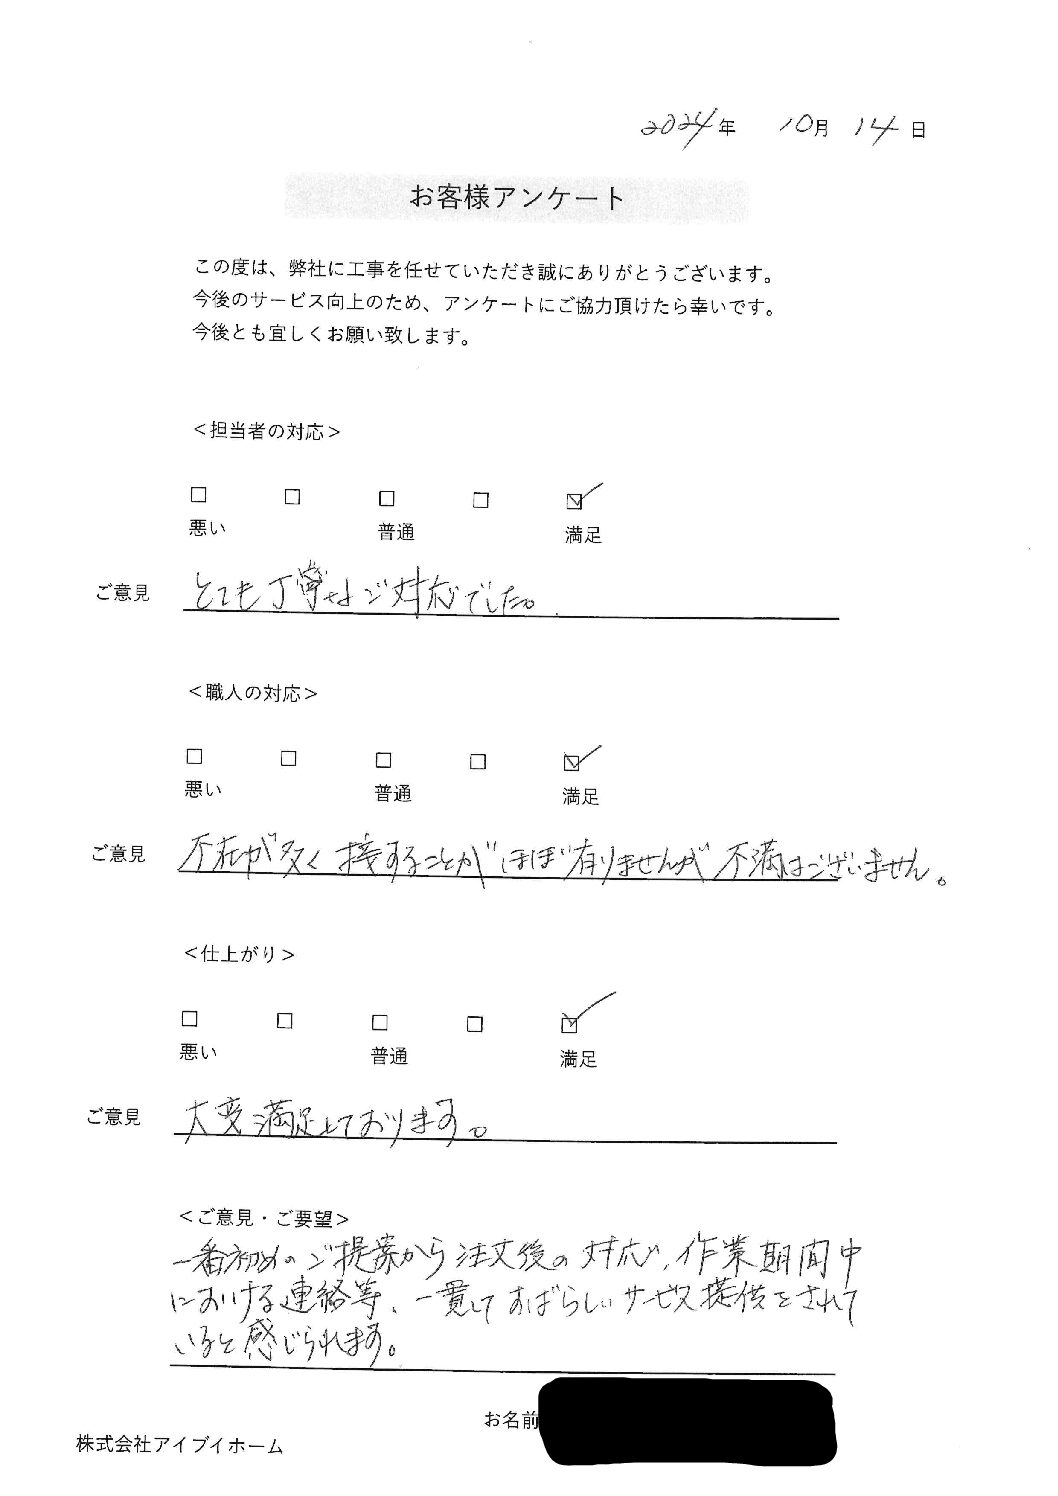 2024年 10月 14日
お客様アンケート
この度は、弊社に工事を任せていただき誠にありがとうございます。
今後のサービス向上のため、アンケートにご協力頂けたら幸いです。
今後とも宜しくお願い致します。
＜担当者の対応＞
□ □ □ □ ☑
悪い 普通 満足
ご意見 とても丁寧なご対応でした。
＜職人の対応＞
□ □ □ □ ☑
悪い 普通 満足
ご意見 不在が多く接することがほぼ有りませんが不満はございません。
＜仕上がり＞
□ □ □ □ ☑
悪い 普通 満足
ご意見 大変満足しております。
＜ご意見・ご要望＞
一番初めのご提案から注文後の対応、作業期間中
における連絡等、一貫してすばらしいサービス提供をされて
いると感じられます。
お名前
株式会社アイブイホーム